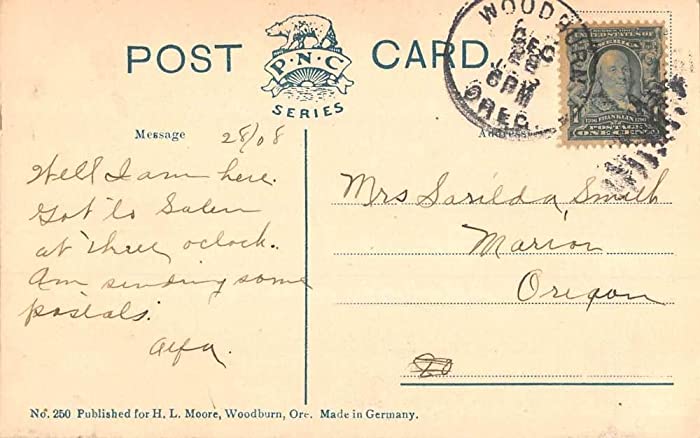 POST CARD
P·N·C
SERIES
WOODBURN
DEC
28
6PM
OREG.
UNITED STATES OF AMERICA
FRANKLIN
POSTAGE
ONE CENT
Message
Address
28/08
Well I am here.
Got to Salem
at three oclock.
Am sending some
postals.
Mrs Sarilda Smith
Marion
Oregon
20
No. 250 Published for H. L. Moore, Woodburn, Ore. Made in Germany.